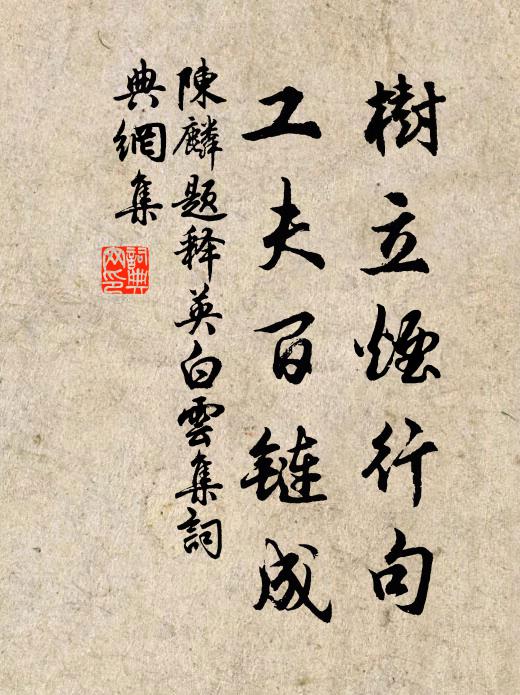 樹立煙行句
工夫百鏈成
陳麟題释英白雲集詞
典網集
詞典